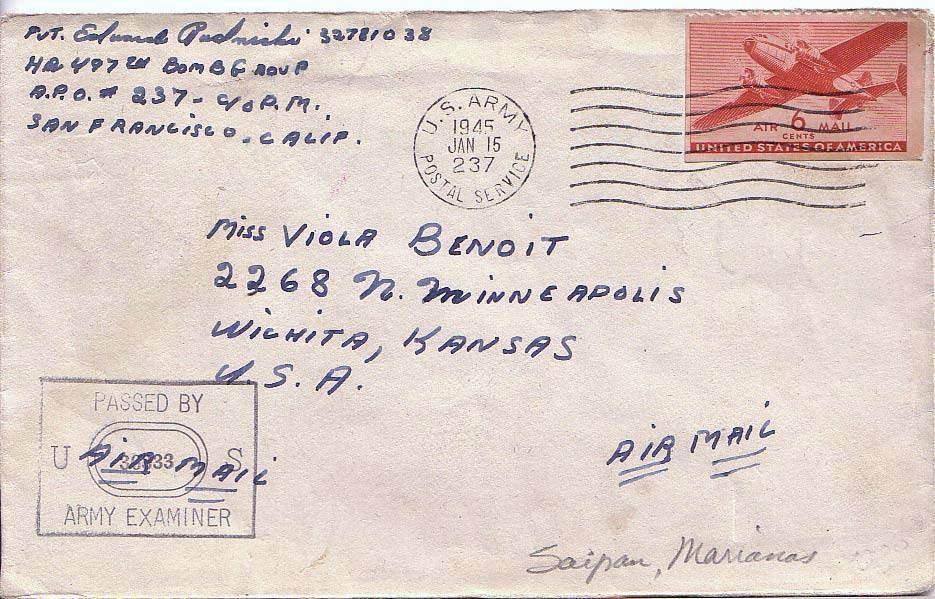 PVT. Edward 32781038
HQ 497TH BOMB GROUP
A.P.O. # 237 - C/O P.M.
SAN FRANCISCO - CALIF.
U.S. ARMY
1945
JAN 15
237
POSTAL SERVICE
AIR 6 MAIL
CENTS
UNITED STATES OF AMERICA
MISS VIOLA BENOIT
2268 N. MINNEAPOLIS
WICHITA, KANSAS
U.S.A.
PASSED BY
U S
ARMY EXAMINER
AIR MAIL
AIR MAIL
Saipan, Marianas